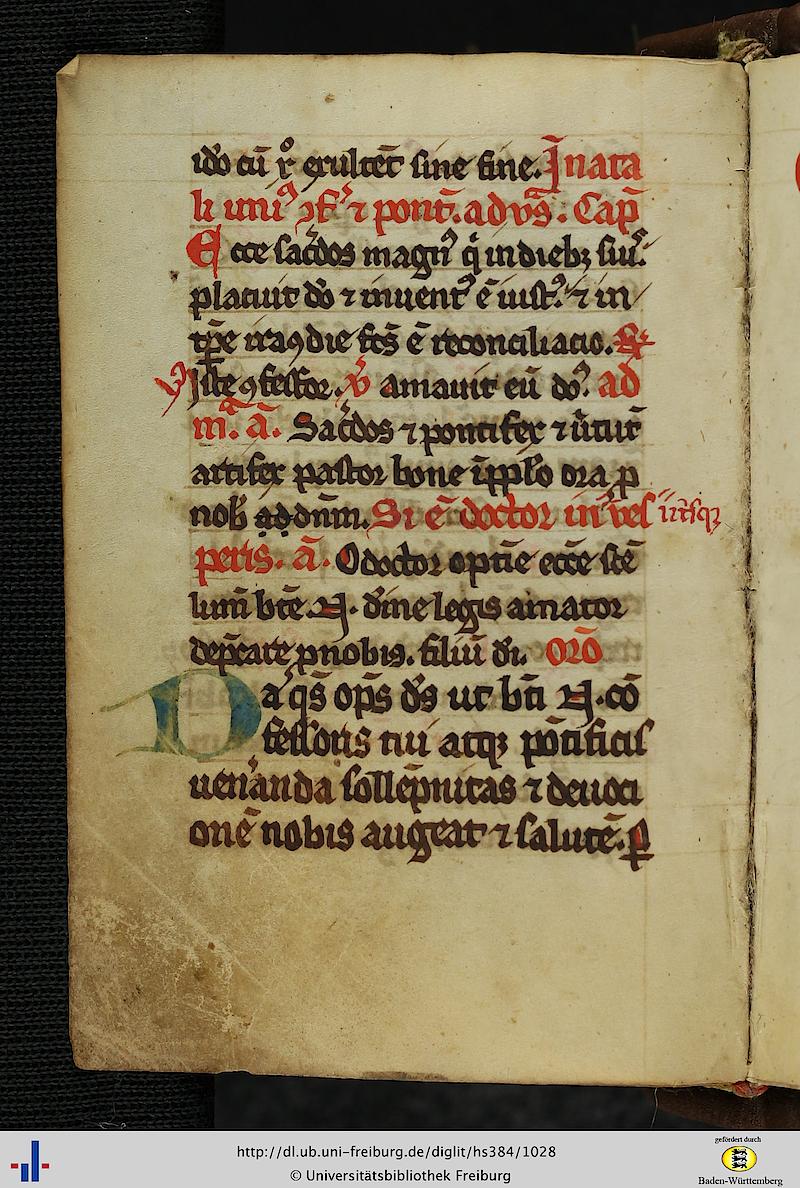 ido cū xͦ exultēt sine fine. In nata
li uniꝰ ꝯfꝭ ⁊ pont̄. ad vꝭas. Cap̄
Ecce sac̄dos magnꝰ qͥ in diebꝫ suis
placuit dō ⁊ inventꝰ ē iustꝰ. ⁊ in
tꝑe iracūdie fc̄s ē reconciliacio. R̄
Iste ꝯfessor. v̄ amavit eū dōs. ad
m̄. ā. Sac̄dos ⁊ pontifex ⁊ v̄tutū
artifex pastor bone ī pplo ora p
nob̄ ad dn̄m. Si ē doctor in vꝰes utrisqꝫ
peris. ā. O doctor optīe ecc̄e sc̄e
lum̄ btē. N. dīne legis amator
dep̄care ꝓ nobis. filiū dī. Orō
Da q̄s om̄ps ds̄ ut bt̄i N. cō
fessoris tui atqꝫ pōtificis
ven̄anda sollēpnitas ⁊ devoci
onē nobis augeat ⁊ salutē. ꝑ
http://dl.ub.uni-freiburg.de/diglit/hs384/1028
© Universitätsbibliothek Freiburg
gefördert durch
Baden-Württemberg